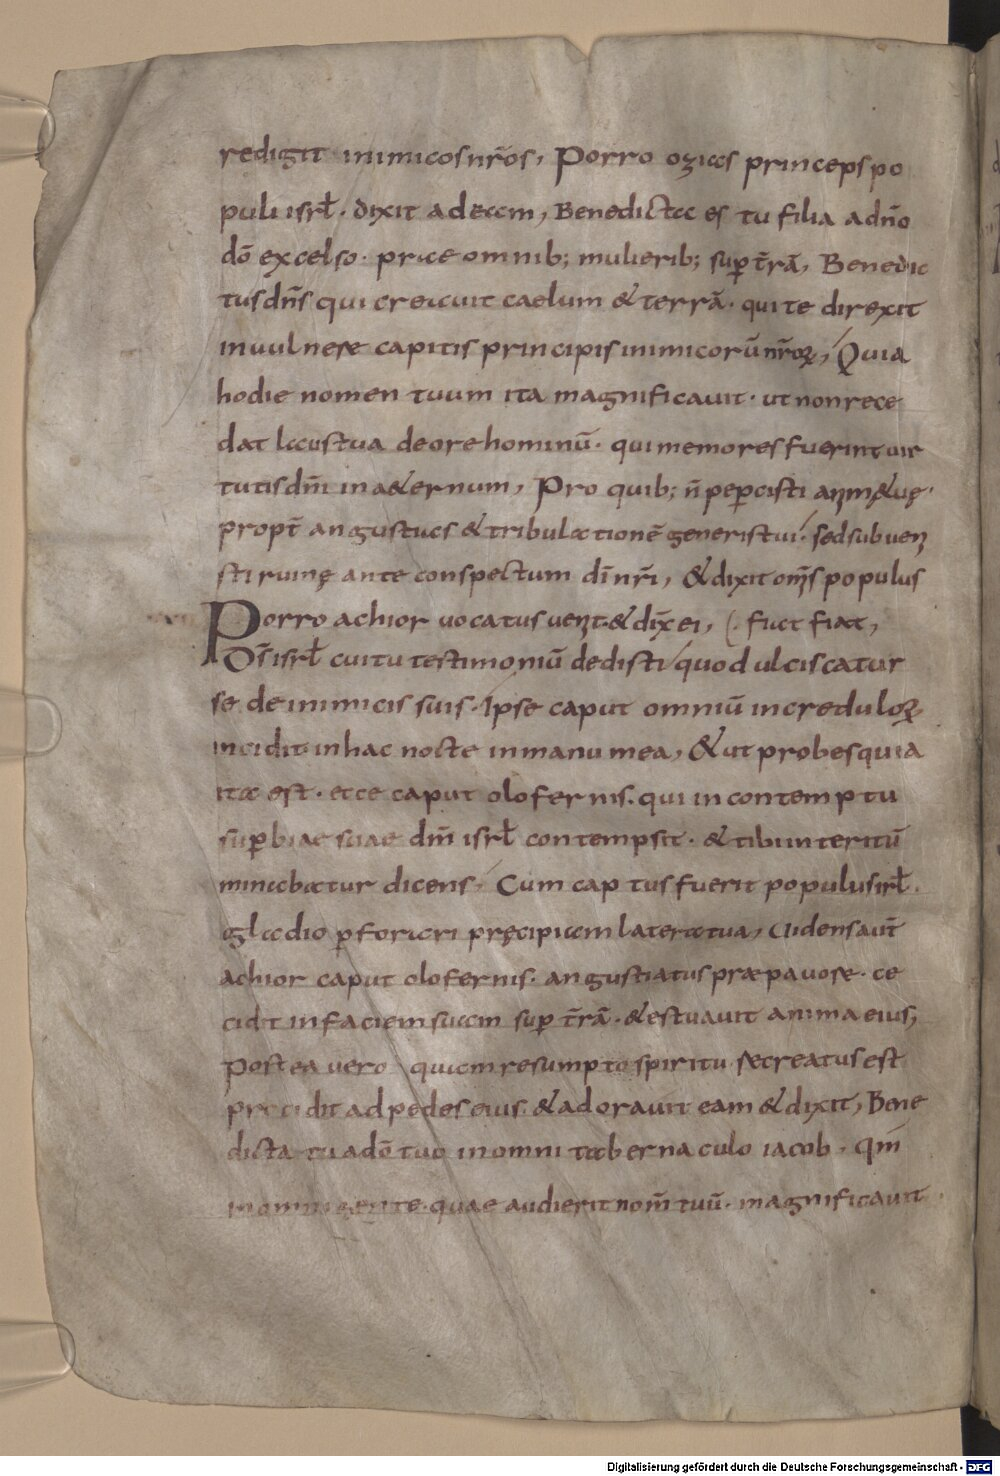 redigit inimicos nr̄os, Porro ozias princeps po
puli isrł. dixit ad eam, Benedicta es tu filia a dn̄o
dō excelso. prae omnib; mulierib; sup̄ t̄rā, Benedic
tus dn̄s qui creauit caelum & terrā. qui te direxit
in uulnere capitis principis inimicorū nr̄oꝝ, Quia
hodie nomen tuum ita magnificauit. ut non rece
dat laus tua de ore hominū. qui memores fuerint uir
tutis dn̄i in a&ernum, Pro quib; n̄ peꝑcisti animę tuę.
propt̄ angustias & tribulationē generis tui. sed subueni
sti ruinę ante conspectum dī nr̄i, & dixit om̄s populus
Porro achior uocatus uenit & dix̄ ei, (. fiat fiat,
Dī isrł cui tu testimoniū dedisti quod ulciscatur
se de inimicis suis. Ipse caput omniū increduloꝝ
incidit in hac nocte in manu mea, & ut probes quia
ita est. ecce caput olofernis. qui in contemptu
suꝑbiae suae dm̄ isrł contempsit. & tibi interitū
minabatur dicens, Cum captus fuerit populus isrł.
gladio ꝑforari pręcipiam latera tua, Uidens aut̄
achior caput olofernis. angustiatus prae pauore. ce
cidit in faciem suam sup̄ t̄rā. & estuauit anima eius,
Postea uero quam resumpto spiritu recreatus est
procidit ad pedes eius. & adorauit eam & dixit, Bene
dicta tu a dō tuo in omni tabernaculo iacob. qm̄
in omni gente. quae audierit nom̄ tuū. magnificauit
Digitalisierung gefördert durch die Deutsche Forschungsgemeinschaft - DFG